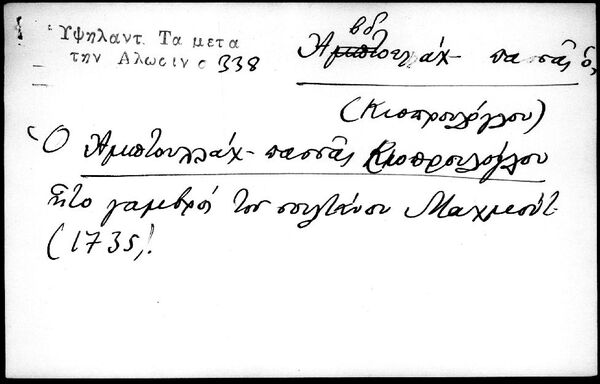 Ὑψηλαντ. Τα μετα
την Αλωσιν σ 338
Αβδουλλάχ - πασᾶς ὁ,
(Κιοπρουλόγλου)
Ὁ Αμπτουλλάχ - πασᾶς Κιοπρουλόγλου
ἦτο γαμβρός του σουλτάνου Μαχμούτ
(1735).